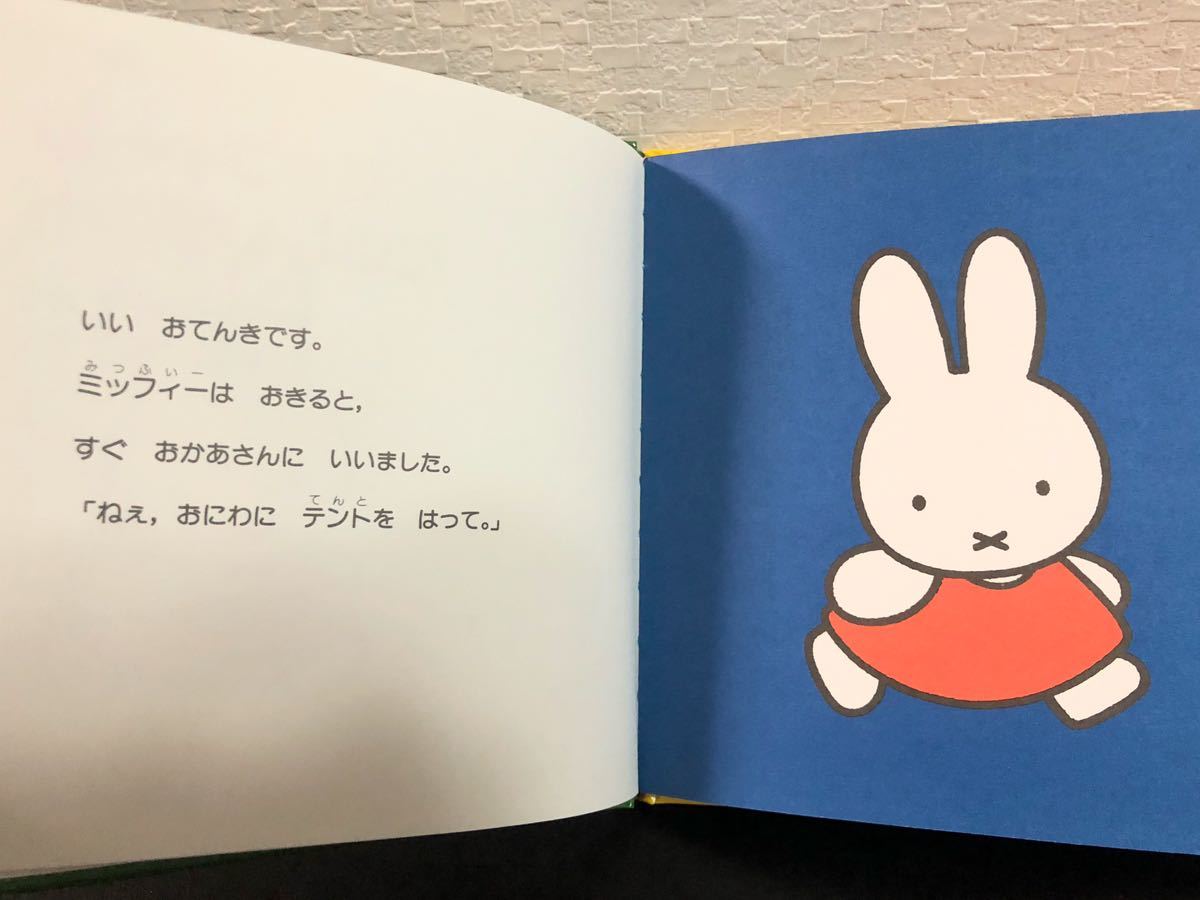 いい　おてんきです。
みっふぃー
ミッフィーは　おきると，
すぐ　おかあさんに　いいました。
てんと
「ねぇ，おにわに　テントを　はって。」